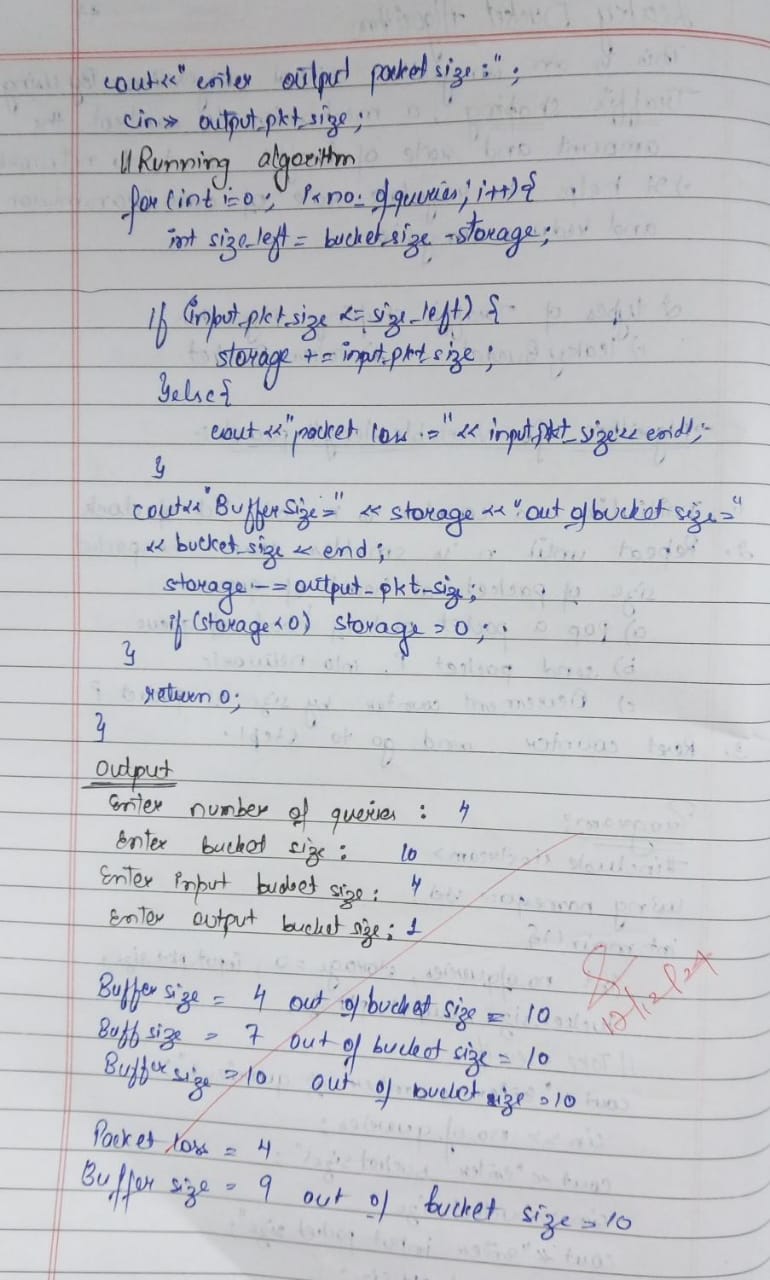 cout<<" enter output packet size :" ;
cin>> output_pkt_size ;
// Running algorithm
for (int i=0 ; i<no_of queries ; i++) {
int size_left = bucket_size - storage ;
if (input_pkt_size <= size_left) {
storage += input_pkt_size ;
} else {
cout << "packet loss =" << input_pkt_size << endl ;
}
cout<< "Buffer Size=" << storage << "out of bucket size="
<< bucket_size < end ;
storage -= output_pkt_size ;
if (storage <0) storage = 0 ;
}
return 0 ;
}
Output
Enter number of queries : 4
Enter bucket size : 10
Enter input bucket size : 4
Enter output bucket size : 1
Buffer size = 4 out of bucket size = 10
Buff size = 7 out of bucket size = 10
Buffer size = 10 out of bucket size = 10
Packet loss = 4
Buffer size = 9 out of bucket size = 10
12/12/24